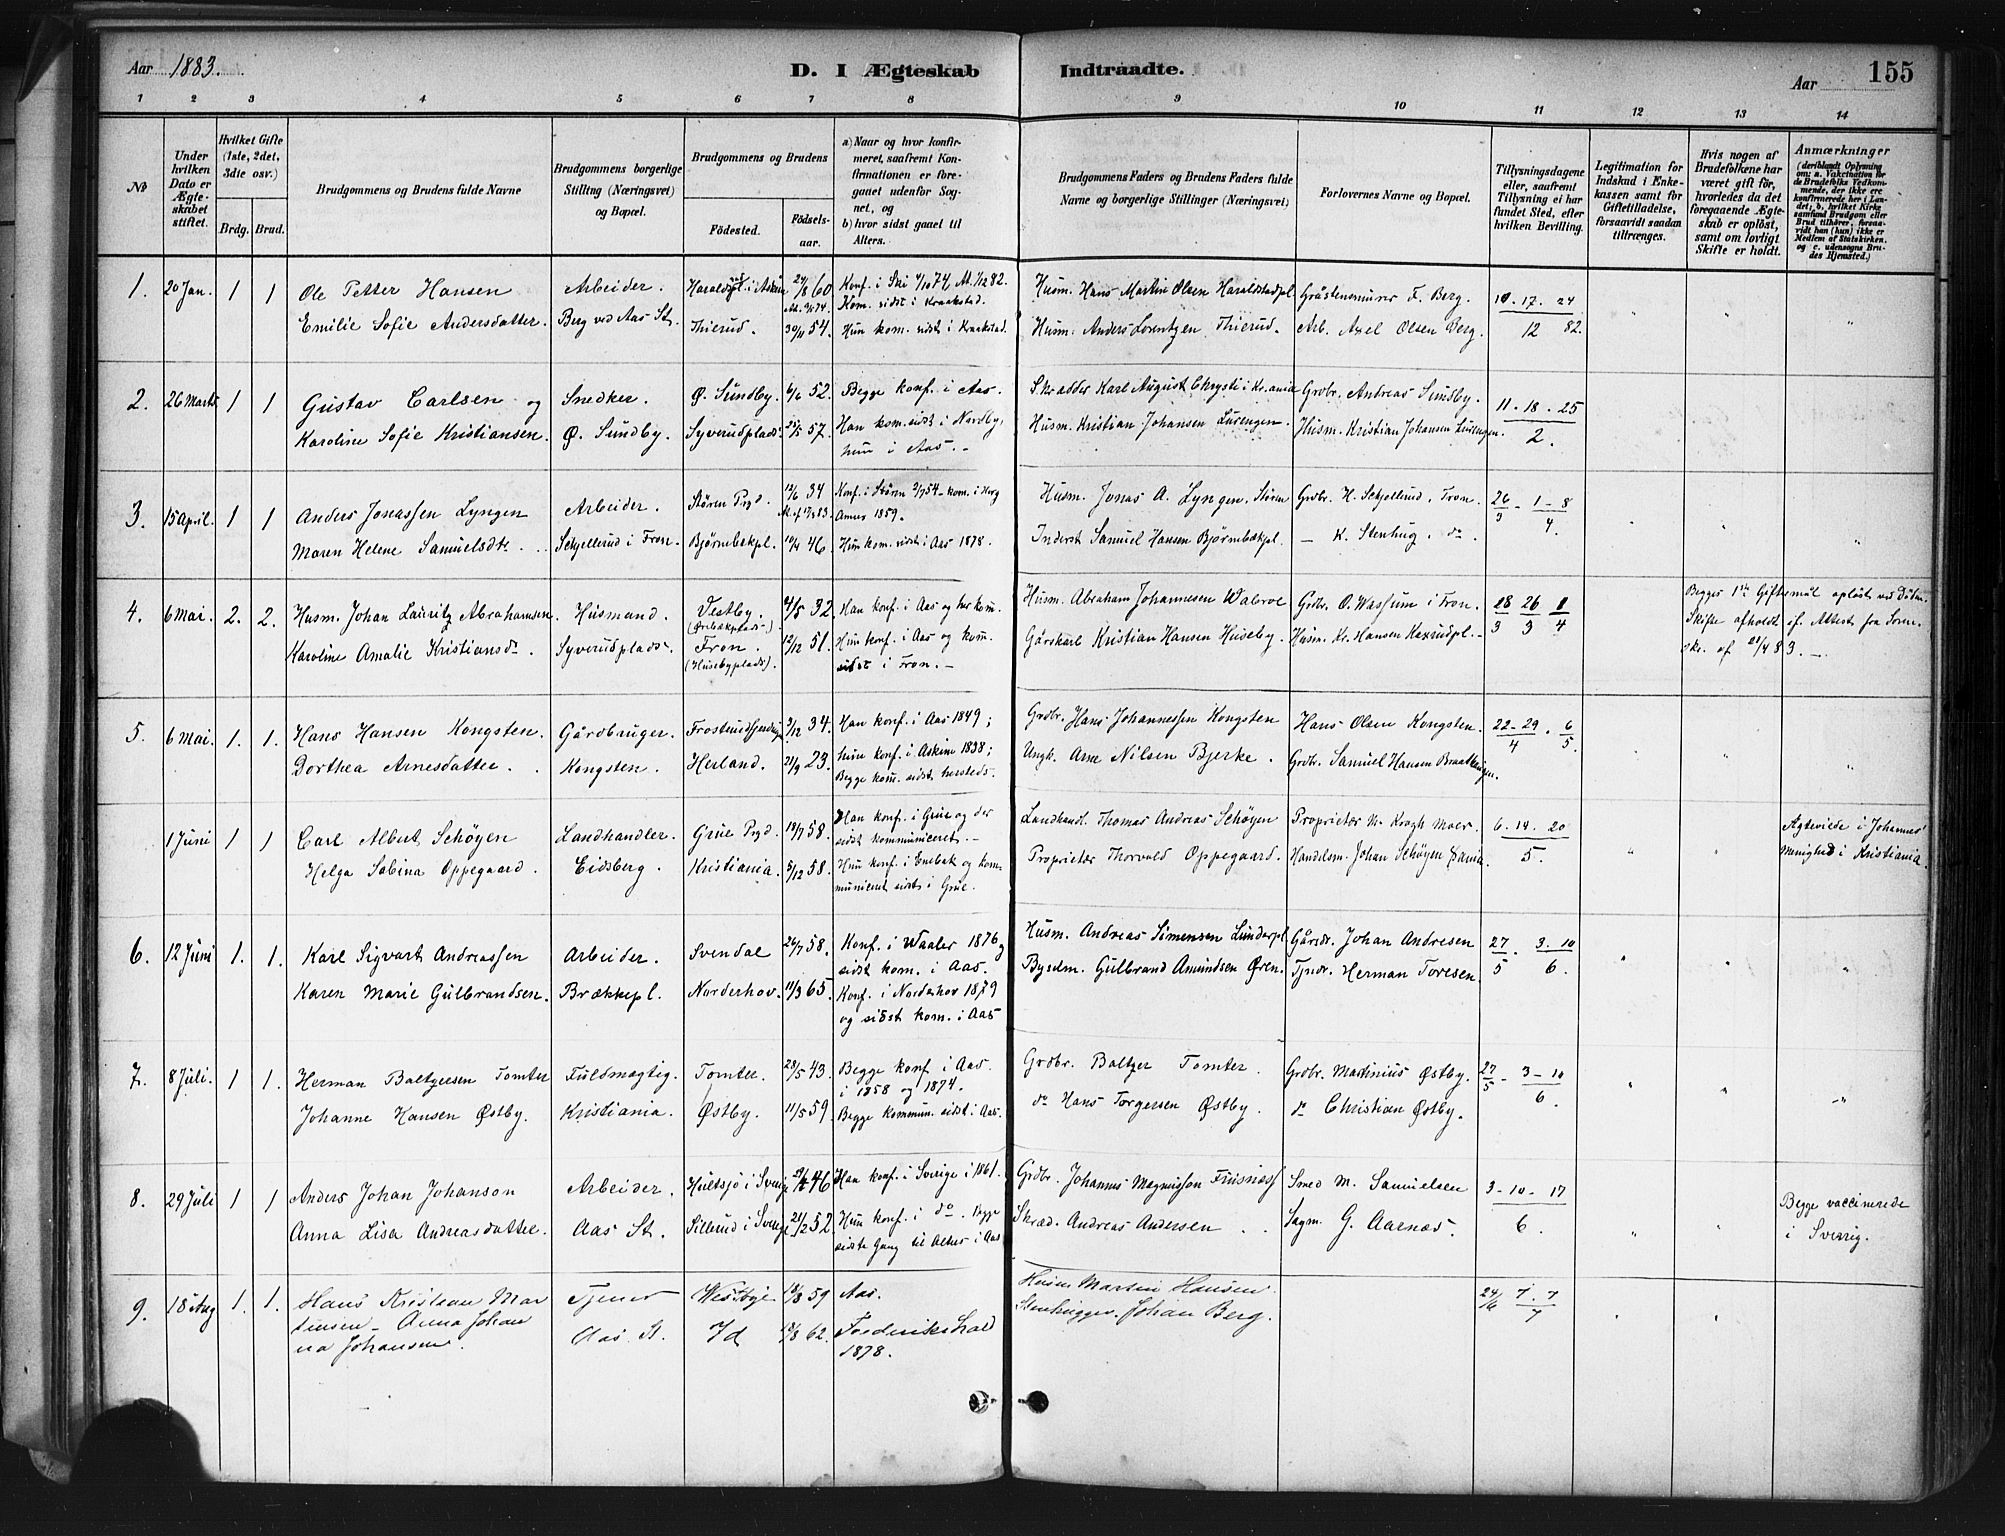 Aar 1883.
D. I Ægteskab Indtraadte.
Aar 155
1 2 3 4 5 6 7 8 9 10 11 12 13 14
No
Under hvilken Dato er Ægteskabet stiftet.
Hvilket Gifte (1ste, 2det, 3die osv.)
Brdg. Brud.
Brudgommens og Brudens fulde Navne
Brudgommens borgerlige Stilling (Næringsvei) og Bopæl.
Brudgommens og Brudens
Födested.
Födselsaar.
a) Naar og hvor konfirmeret, saafremt Konfirmationen er foregaaet udenfor Sognet, og
b) hvor sidst gaaet til Alters.
Brudgommens Faders og Brudens Faders fulde Navne og borgerlige Stillinger (Næringsvei)
Forlovernes Navne og Bopæl.
Tillysningsdagene eller, saafremt Tillysning ei har fundet Sted, efter hvilken Bevilling.
Legitimation for Indskud i Enkekassen samt for Giftetilladelse, forsaavidt saadan tiltrænges.
Hvis nogen af Brudefolkene har været gift för, hvorledes da det foregaaende Ægteskab er oplöst, samt om lovligt Skifte er holdt.
Anmærkninger
(deriblandt Oplysning om: a. Vakcination for de Brudefolks Vedkommende, der ikke ere konfirmerede her i Landet; b. hvilket Kirkesamfund Brudgom eller Brud tilhörer, forsaavidt han (hun) ikke er Medlem af Statskirken, og c. udensogns Brudes Hjemsted.)
1. 20 Jan. 1 1 Ole Petter Hansen Arbeider. 24/8 60 Konf. i Ski 4/10 74, At. 1/12 82. Husm. Hans Martin Olsen Haraldstadpl. Gråstensmurer F. Berg. 10. 17. 24
Emilie Sofie Andersdatter. Berg ved Aas St. Thierud. 30/11 54. Hun kom. sidst i Kraakstad. Husm. Anders Lorentzen Thierud. Arb. Axel Olsen Berg. 12 82.
Kom. sidst i Kraakstad.
2. 26 Marts 1 1 Gustav Carlsen og Snedker. Ø. Sundby. 6/6 52. Begge konf. i Aas. Skrædder Karl August Chrysti i Kr.ania Grdbr. Andreas Sundby. 11. 18. 25
Karoline Sofie Kristiansen. Ø. Sundby. Syverudplads. 25/5 57. Han kom. sidst i Nordby, hun i Aas. Husm. Kristian Johansen Lurengen. Husm. Kristian Johansen Lurengen. 2.
3. 15 April. 1 1 Anders Jonassen Lyngen Arbeider. Støren Pgd. 12/6 34 Konf. i Støren 2/7 54 - kom. i Husm. Jonas A. Lyngen, Støren Grdbr. H. Schjellerud, Fron. 26/3 - 1 - 8
Maren Helene Samuelsdt. Schjellerud i Fron. Bjørnebekpl. 10/4 46. Hun kom. sidst i Aas 1878. Inderst Samuel Hansen Bjørnebækpl. — K. Stenhug. do. 4.
4. 6 Mai. 2. 2. Husm. Johan Lauritz Abrahamsen Husmand. Vestby. 4/5 32. Han konf. i Aas og her kom. Husm. Abraham Johannesen Grdbr. O. Wassum i Fron. 18/3 26/3 1/4 Begges 1ste Giftermål opløst ved Døden.
Karoline Amalie Kristiansd. Syverudplads. Fron. (Husebyplads). 12/12 51. Hun konf. i Aas og kom. sidst i Fron. Gårdskarl Kristian Hansen Huseby. Husm. Kr. Hansen Kaxrudpl. Skifte afholdt cf. Attest fra Sorenskr. af 21/4 83.
5. 6 Mai. 1. 1. Hans Hansen Kongsten. Gårdbruger. 3/12 34. Han konf. i Aas 1849; Grdbr. Hans Johannessen Kongsten Hans Olsen Kongsten. 22 - 29 . 6
Dorthea Arnesdatter. Kongsten. Herland. 21/9 23. hun konf. i Askim 1838; Ungk. Arne Nilsen Bjerke. Grdbr. Samuel Hansen 4 5.
Begge kom. sidst hersteds.
1 Juni 1 1 Carl Albert Schøyen Landhandler. Grue Pgd. 18/7 58. Han konf. i Grue og der sidst kommuniceret. Landhandl. Thomas Andreas Schøyen Proprietær N. Krogh Moer. 6. 14. 20 Ægteviede i Johannes'
Helga Sabina Oppegaard. Eidsberg. Kristiania. 5/12 58. Hun konf. i Enebak og kommuniceret sidst i Grue. Proprietær Thorvald Oppegaard. Handelsm. Johan Schøyen 5. Menighed i Kristiania.
6. 12 Juni 1. 1. Karl Sigvart Andreassen Arbeider. Svendal 26/7 58. Konf. i Waaler 1876 og sidst kom. i Aas. Husm. Andreas Simensen Lunderpl. Gårdbr. Johan Andresen 27/5 . 3. 10
Karen Marie Gulbrandsen. Brækkepl. Norderhov. 11/3 65. Konf. i Norderhov 1879 og sidst kom. i Aas Gulbrand Amundsen Øren. Tjndr. Herman Toresen. 6.
7. 8 Juli. 1 1. Herman Baltzersen Tomter Fuldmægtig. Tomter. 28/5 43. Begge konf. i Aas. i 1858 og 1874. Grdbr. Baltzer Tomter. Grdbr. Martinius Østby. 27/5 - 3 - 10
Johanne Hansen Østby. Kristiania. Østby. 11/5 59. Begge kommun. sidst i Aas. do Hans Torgersen Østby. do Christian Østby. 6.
8. 29 Juli 1 1 Anders Johan Johanson Arbeider. Hultsjö i Sverige 46 Han konf. i Sverige i 1861. Grdbr. Johannes Magnusson Smed M. Samuelsen 3 - 10 - 17 Begge vaccinerede
Anna Lisa Andreasdatter. Aas St. Sillerud i Sverige 21/2 52. Hun konf. i do. Begge sidste Gang til Alters i Aas Skræd. Andreas Andersen Sagm. G. Aarnæs. 6. i Sverrig.
9. 18 Aug 1. 1. Hans Kristian Martinsen - Anna Johanna Johansen. Tjener Westbye 18/8 59 Aas. Husm. Martin Hansen. 24/6 1. 7
Aas. St. Id 18/8 62. Frederikshald 1878. Stenhugger Johan Berg. 7